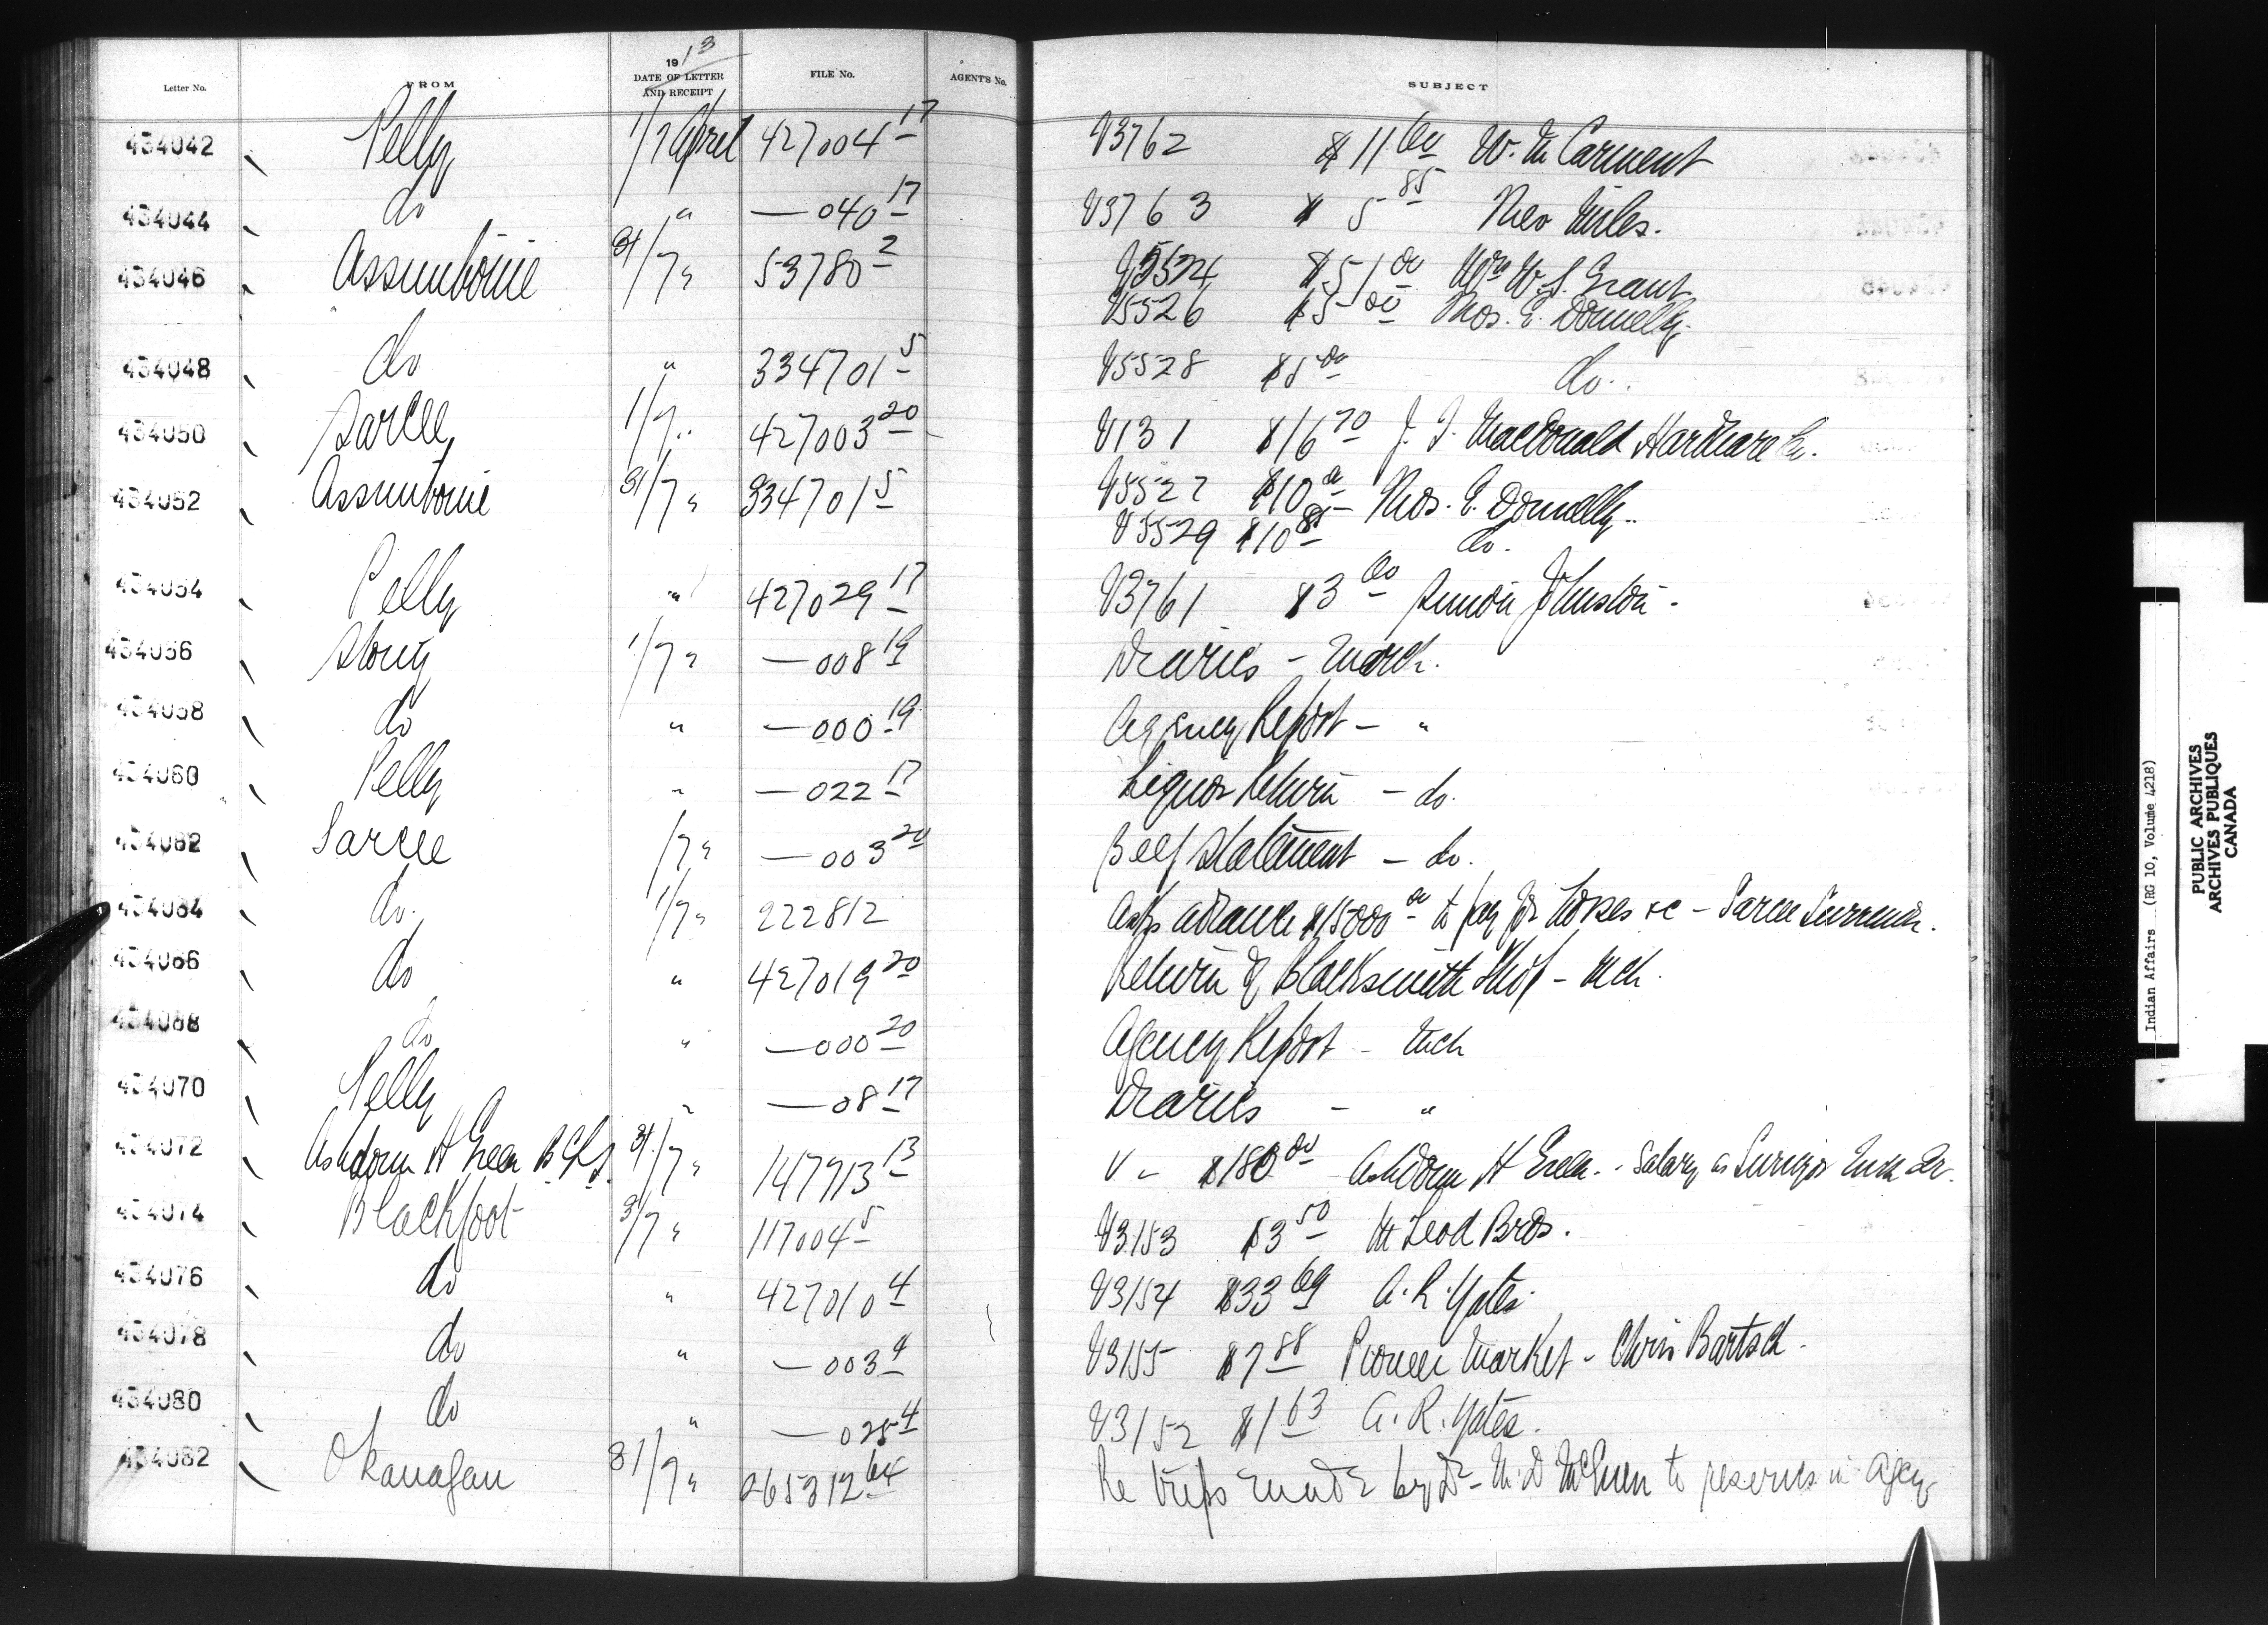 1913
Letter No. FROM DATE OF LETTER AND RECEIPT FILE No. AGENT'S No. SUBJECT
434042 Pelly 1/7 April 427004 17 V3762 $11 00 W. Mc Carment
434044 do " — 040 17 V3763 $5 85 Neo Miles.
434046 Assiniboine 31/7 " 53780 2 V5524 $51 00 Mrs W. S. Grant
V5526 $5 00 Thos. E. Donnelly.
434048 do " 334701 5 V5528 $5 00 do.
434050 Sarcee 1/7 " 427003 20 V131 $16 70 J. J. MacDonald Hardware Co.
434052 Assiniboine 31/7 " 334701 5 V5527 $10 Thos. E. Donnelly
V5529 $10 85 do.
434054 Pelly " 427029 17 V3761 $3 00 Simon Johnston -
434056 Stony 1/7 " — 008 19 Diaries - March.
434058 do " — 000 19 Agency Report - "
434060 Pelly " — 022 17 Liquor Return - do.
434062 Sarcee 1/7 " — 003 20 Beef Statement - do.
434064 do. 1/7 " 222812 Asks advance $15000 00 to pay for horses &c - Sarcee Surrender.
434066 do " 427019 20 Return of Blacksmith Shop - Mch.
434068 do " — 000 20 Agency Report - Mch
434070 Pelly " — 08 17 Diaries - "
434072 Ashdown H Green B.C.L.S. 31/7 " 147913 13 V - $180 00 Ashdown H Green. - Salary as Surveyor
434074 Blackfoot 31/7 " 117004 5 V3153 $3 50 McLeod Bros.
434076 do " 427010 4 V3154 $33 69 A. R. Yates.
434078 do " — 003 4 V3155 $7 88 Pioneer Market - Chris Bartsch.
434080 do " — 025 4 V3152 $1 63 A. R. Yates.
434082 Okanagan 31/7 " 265312 64 Re trips made by Dr M.D. McEwen to reserves in Agcy
Indian Affairs. (RG 10, Volume 4218)
PUBLIC ARCHIVES
ARCHIVES PUBLIQUES
CANADA